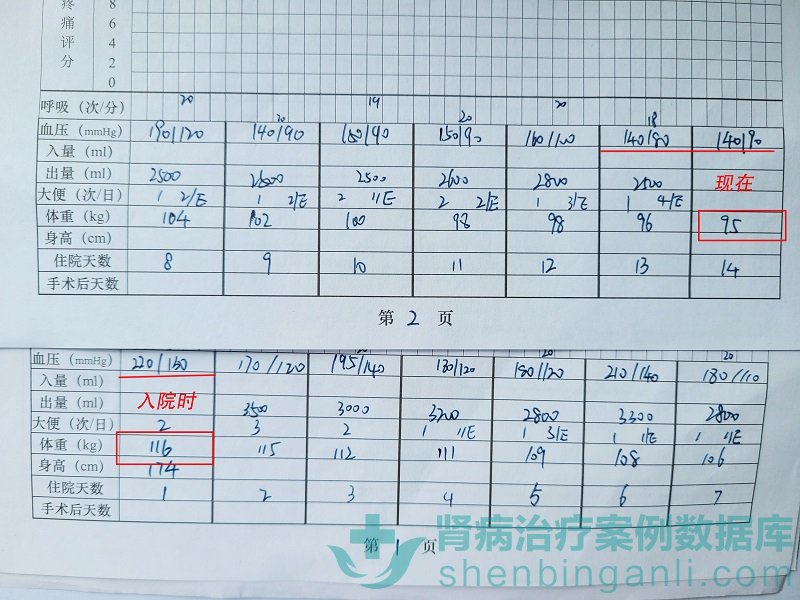 疼痛评分
8
6
4
2
0
呼吸（次/分） 20 20 19 20 20 18
血压（mmHg） 190/120 140/90 160/90 150/90 160/100 140/80 140/90
入量（ml）
出量（ml） 2500 2600 2500 2600 2800 2500 现在
大便（次/日） 1 2/E 1 2/E 2 1/E 2 2/E 1 3/E 1 4/E
体重（kg） 104 102 100 98 98 96 95
身高（cm）
住院天数 8 9 10 11 12 13 14
手术后天数
第 2 页
血压（mmHg） 220/160 170/120 195/140 130/120 180/120 210/140 180/110
入量（ml） 入院时
出量（ml） 3500 3000 3200 2800 3300 2800
大便（次/日） 2 3 2 1 1/E 1 3/E 1 1/E 1 1/E
体重（kg） 116 115 112 111 109 108 106
身高（cm） 174
住院天数 1 2 3 4 5 6 7
手术后天数
第 1 页
肾病治疗案例数据库
shenbinganli.com